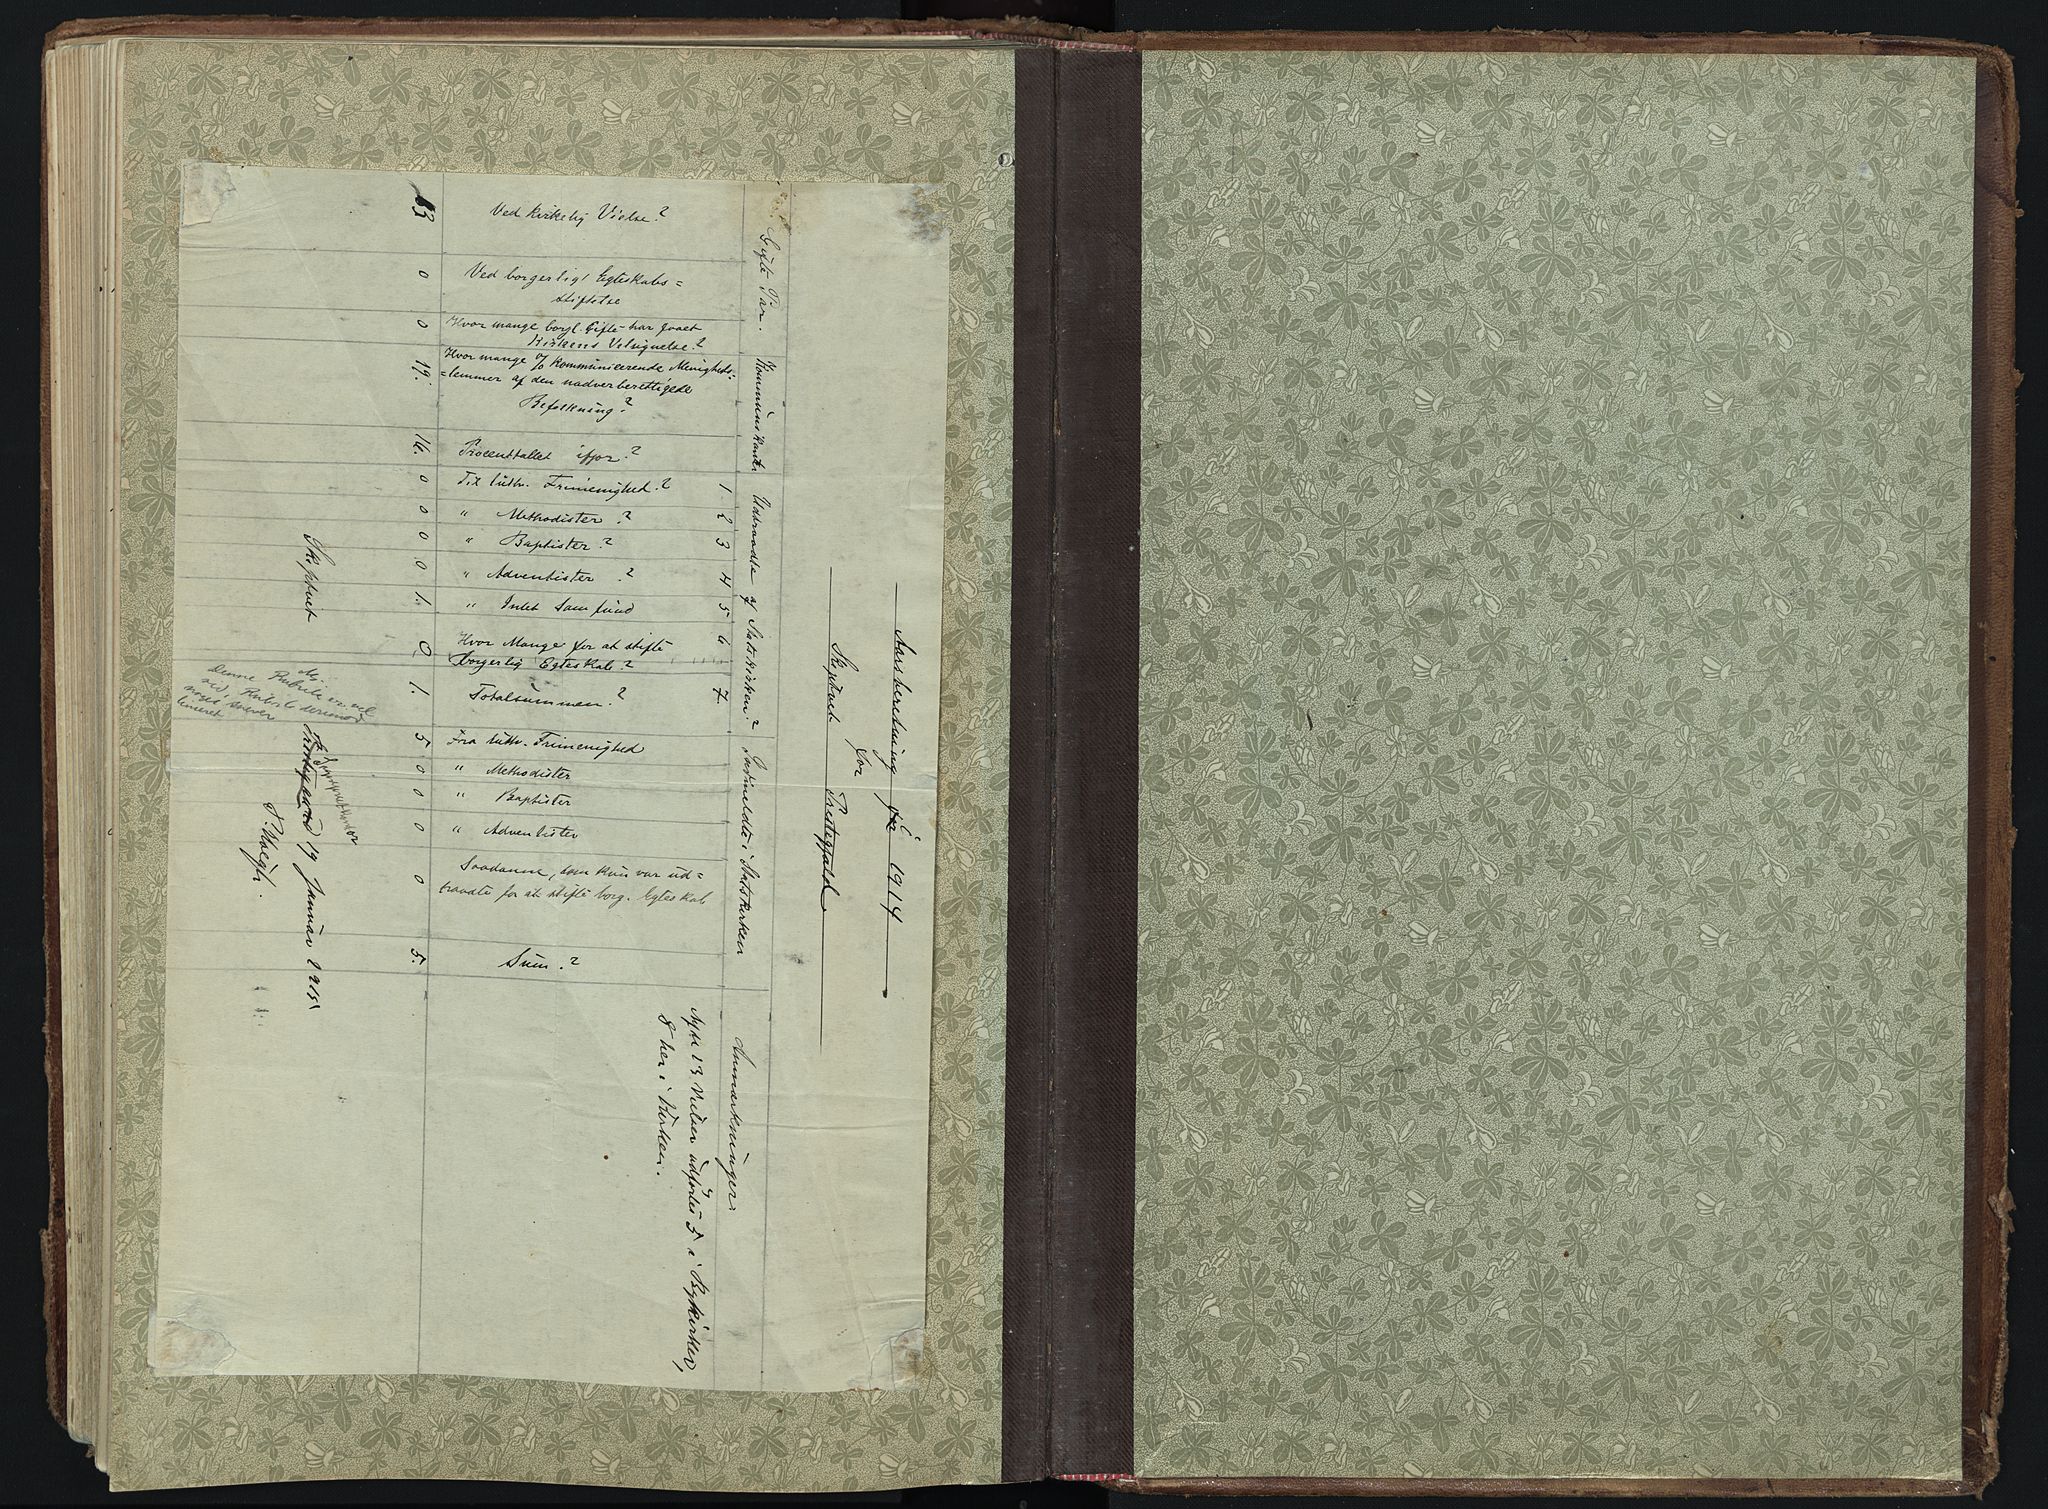 Aarsberetning for 1914
for
Skiptvet Prestegjæld
Gifte Par.
Kommunikanter
Udtraadte af Statskirken?
Indmeldte i Statskirken
Anmærkninger
1 2 3 4 5 6 7
Ved kirkelig Vielse?
13
Ved borgerligt Egteskabs=
stiftelse
0
Hvor mange borgl. Gifte har faaet
Kirkens Velsignelse?
0
Hvor mange % kommunicerende Menigheds=
=lemmer af den nadverberettigede
Befolkning?
19.
Procenttallet ifjor?
16.
Til luth. Frimenighed?
0
" Methodister?
0
" Baptister?
0
" Adventister?
0
" Intet Samfund
1.
Hvor Mange for at stifte
borgerlig Egteskab?
0
Totalsummen?
1.
Fra luth. Frimenighed
5
" Methodister
0
" Baptister
0
" Adventister
0
Saadanne, som kun var ud=
traadte for at stifte borg. Egteskab
0
Sum?
5.
Af de 13 Vielser udførtes 5 i Bykirker,
8 her i Kirken.
Skiptvet
19 Januar 1915
Denne Rubrik er vel